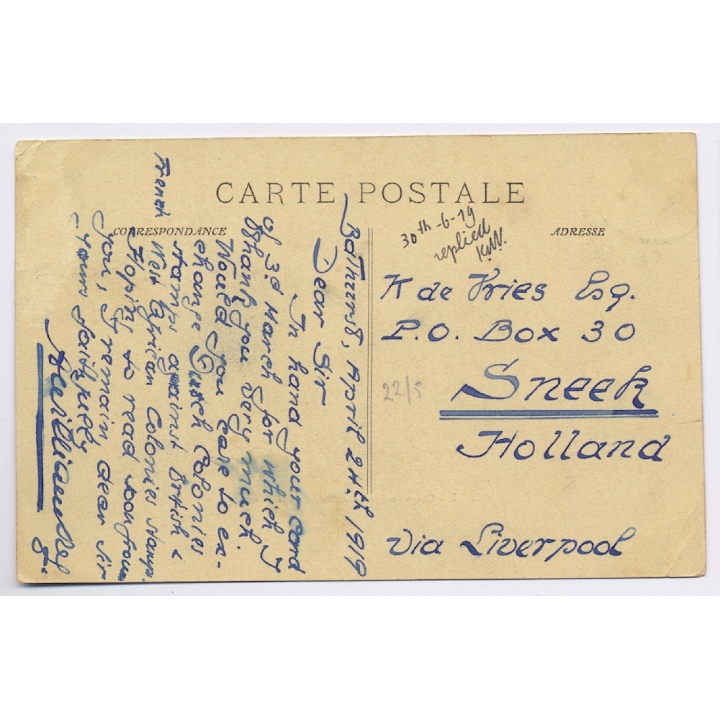 CARTE POSTALE
CORRESPONDANCE
ADRESSE
30th-6-19
replied
K de Vries Esq.
P.O. Box 30
Sneek
Holland
via Liverpool
22/5
Bathurst, April 24th 1919
Dear Sir
In hand your card
of 3d March for which I
thank you very much.
Would you care to ex-
change Dutch Colonies
stamps against British &
French West African Colonies stamps.
Hoping to read soon from
you, I remain dear Sir
yours faithfully